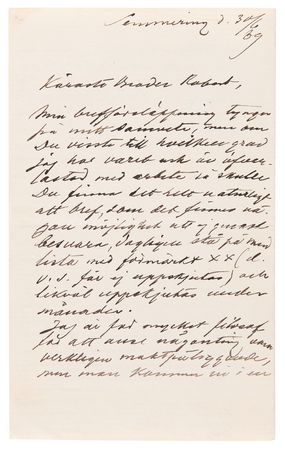 Semmering d. 30/6
69
Käraste Broder Robert,
Min brefförsläppning tynger
på mitt samvete, men om
Du visste till hvilken grad
jag har varit och är öfver-
lastad med arbete så skulle
Du finna det helt naturligt
att bref, som det finnes nå-
gon möjlighet att ej genast
besvara, dagligen stå på min
lista med förmärket XX (d.
v. s. får ej uppskjutas) och
likväl uppskjutas under
månader.
Jag är för mycket filosof
för att anse någonting vara
verkligen maktpåliggande,
men man kommer in i en